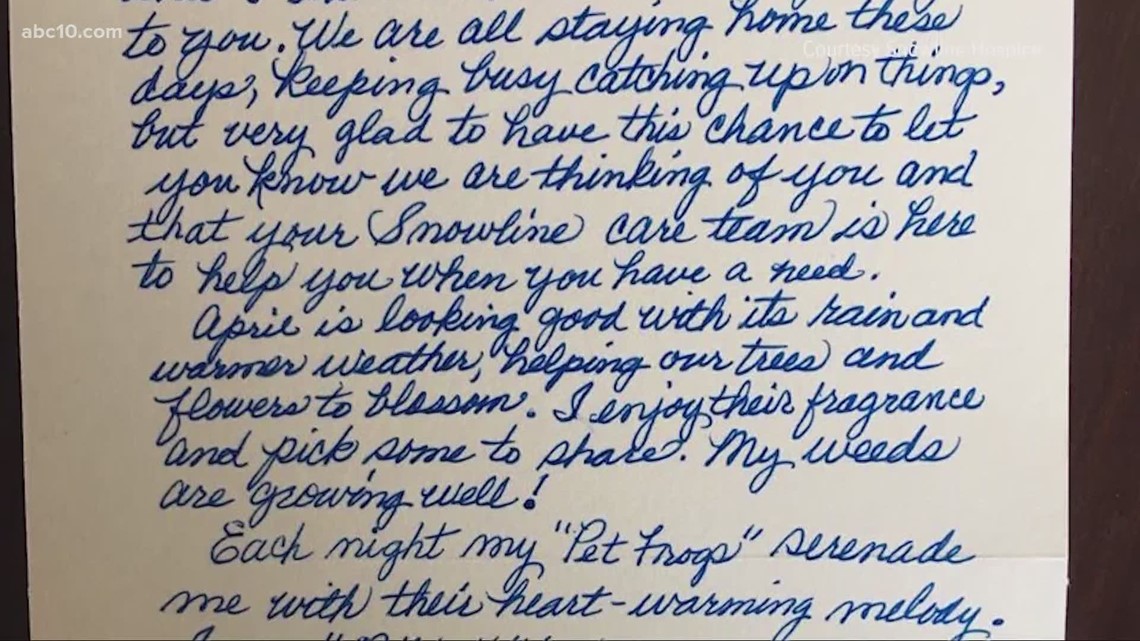 abc10.com
Courtesy Snowline Hospice
to you. We are all staying home these
days, keeping busy catching up on things,
but very glad to have this chance to let
you know we are thinking of you and
that your Snowline care team is here
to help you when you have a need.
April is looking good with its rain and
warmer weather, helping our trees and
flowers to blossom. I enjoy their fragrance
and pick some to share. My weeds
are growing well!
Each night my "Pet Frogs" serenade
me with their heart-warming melody.